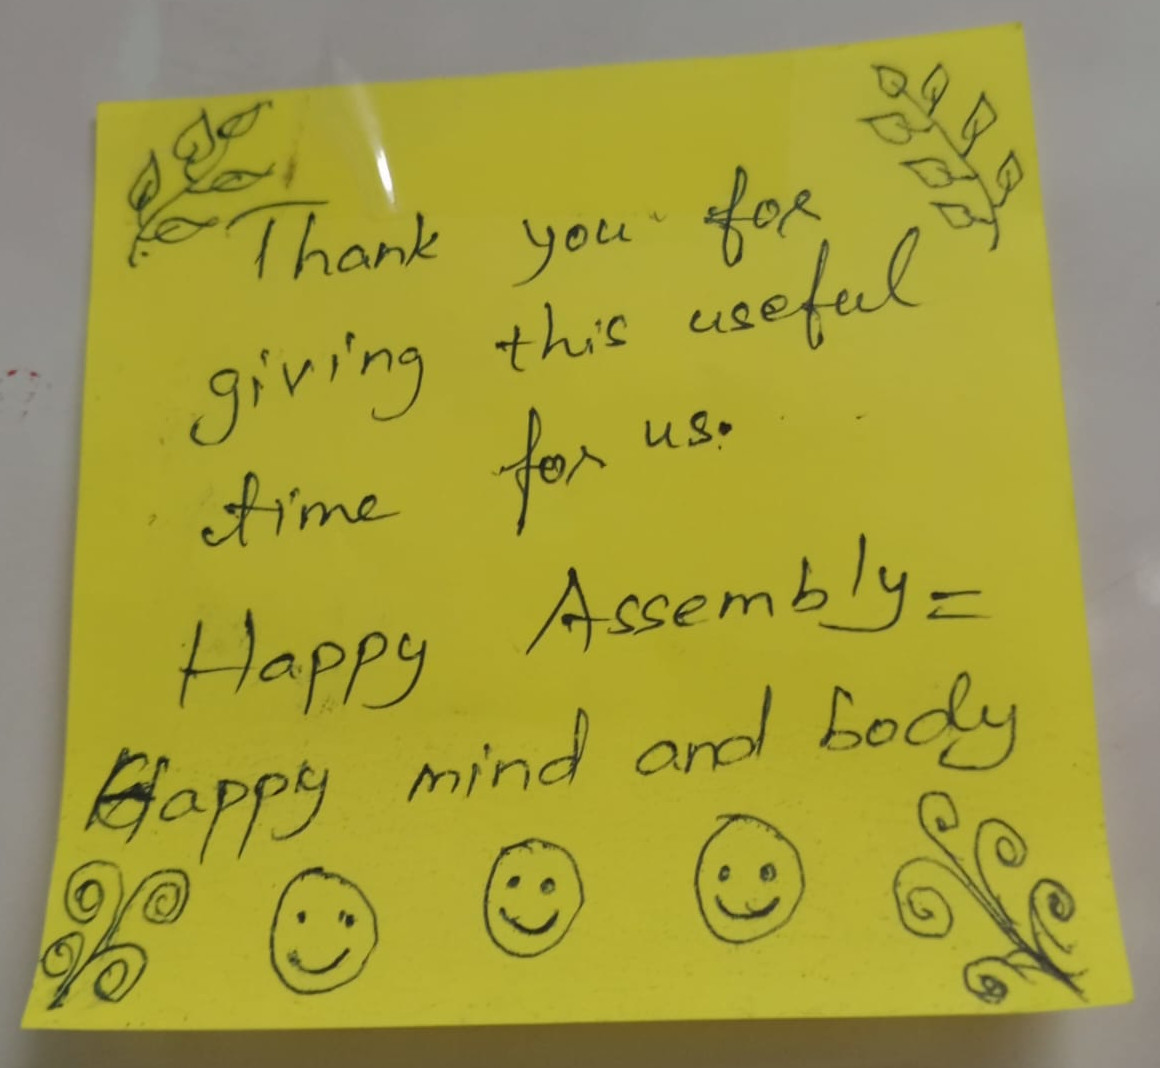 Thank you for
giving this useful
time for us.
Happy Assembly=
Happy mind and body